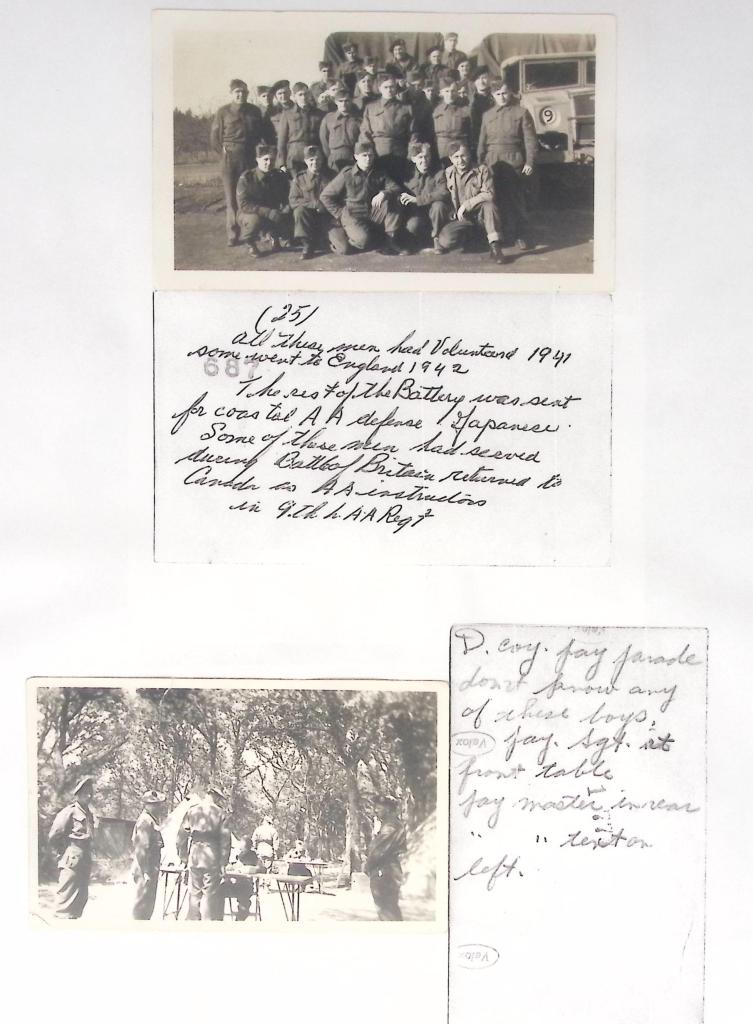 9
(25)
All these men had Volunteard 1941
some went to England 1942
687
The rest of the Battery was sent
for coastal AA defense Japanese.
Some of these men had served
during Battle of Britain returned to
Canada as AA instructors
in 9th L.A.A Regt
D. coy. pay parade
don't know any
of these boys,
Velox
pay. Sgt. at
front table
pay master in rear
" " tent on
left.
Velox